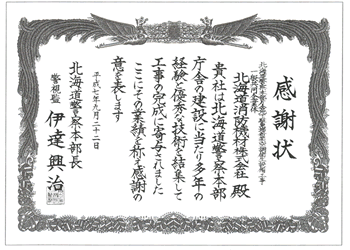 感謝状
北海道消防機材株式会社 殿
貴社は北海道警察本部
庁舎の建設に当たり多年の
経験と優秀な技術を結集して
工事の完成に寄与されました
ここにその業績を称え感謝の
意を表します
平成七年九月二十二日
北海道警察本部長
警視監 伊達興治